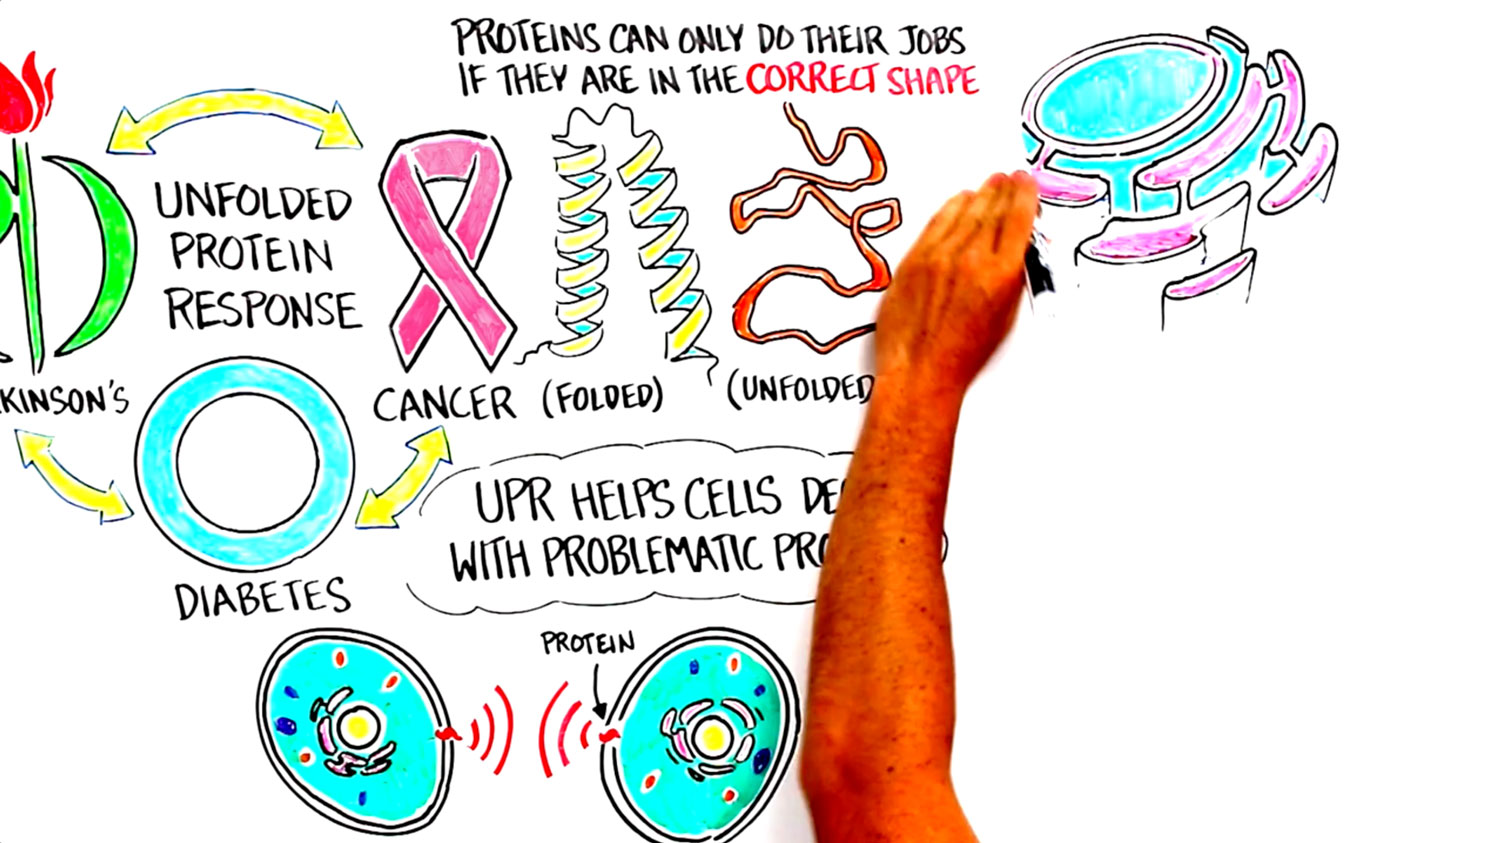 PROTEINS CAN ONLY DO THEIR JOBS
IF THEY ARE IN THE CORRECT SHAPE
UNFOLDED
PROTEIN
RESPONSE
KINSON'S
CANCER
(FOLDED)
(UNFOLDED
DIABETES
UPR HELPS CELLS
WITH PROBLEMATIC
PROTEIN